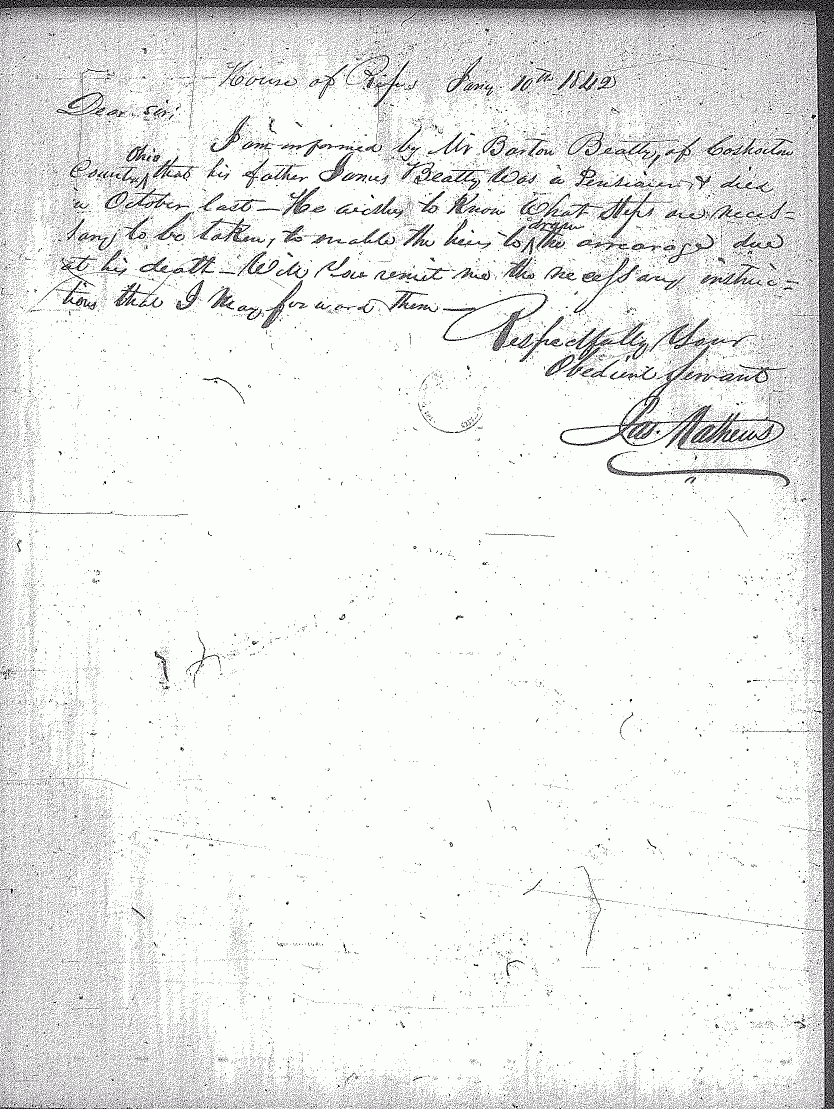 House of Reps Jany 10th 1842
Dear Sir
I am informed by Mr Barton Beatty, of Coshocton
County Ohio that his father James Beatty was a Pensioner & died
in October last – He wishes to know what steps are neces=
sary to be taken, to enable the heirs to draw the arrearage due
at his death – Will you remit me the necessary instruc=
tions that I may forward them –
Respectfully Your
Obedient Servant
Jas. Mathews